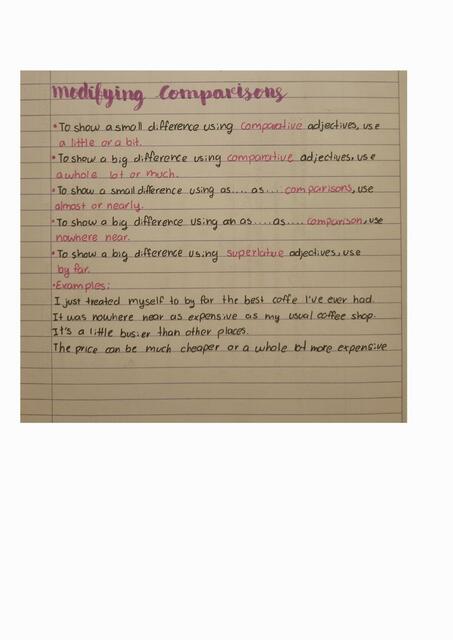 Modifying Comparisons
• To show a small difference using comparative adjectives, use
a little or a bit.
• To show a big difference using comparative adjectives, use
a whole lot or much.
• To show a small difference using as.... as.... comparisons, use
almost or nearly.
• To show a big difference using an as.... as.... comparison, use
nowhere near.
• To show a big difference using superlative adjectives, use
by far.
• Examples:
I just treated myself to by far the best coffe I've ever had.
It was nowhere near as expensive as my usual coffee shop.
It's a little busier than other places.
The price can be much cheaper or a whole lot more expensive